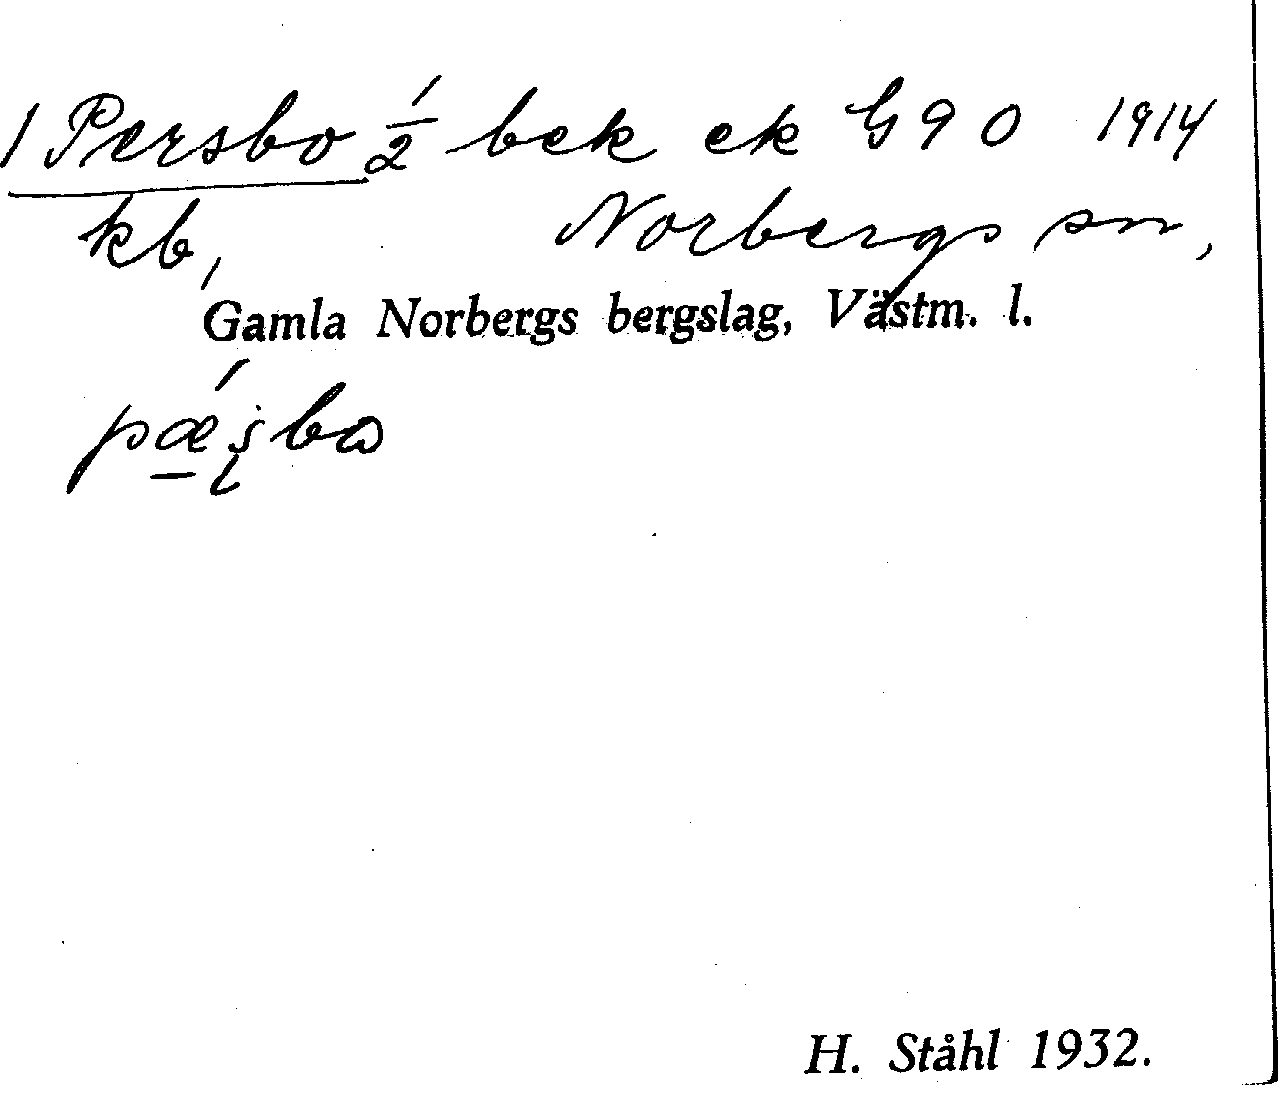 1 Persbo 1/2 bek ek G 9 0 1914
kb, Norbergs sn,
Gamla Norbergs bergslag, Västm. l.
pǽşbo
H. Ståhl 1932.